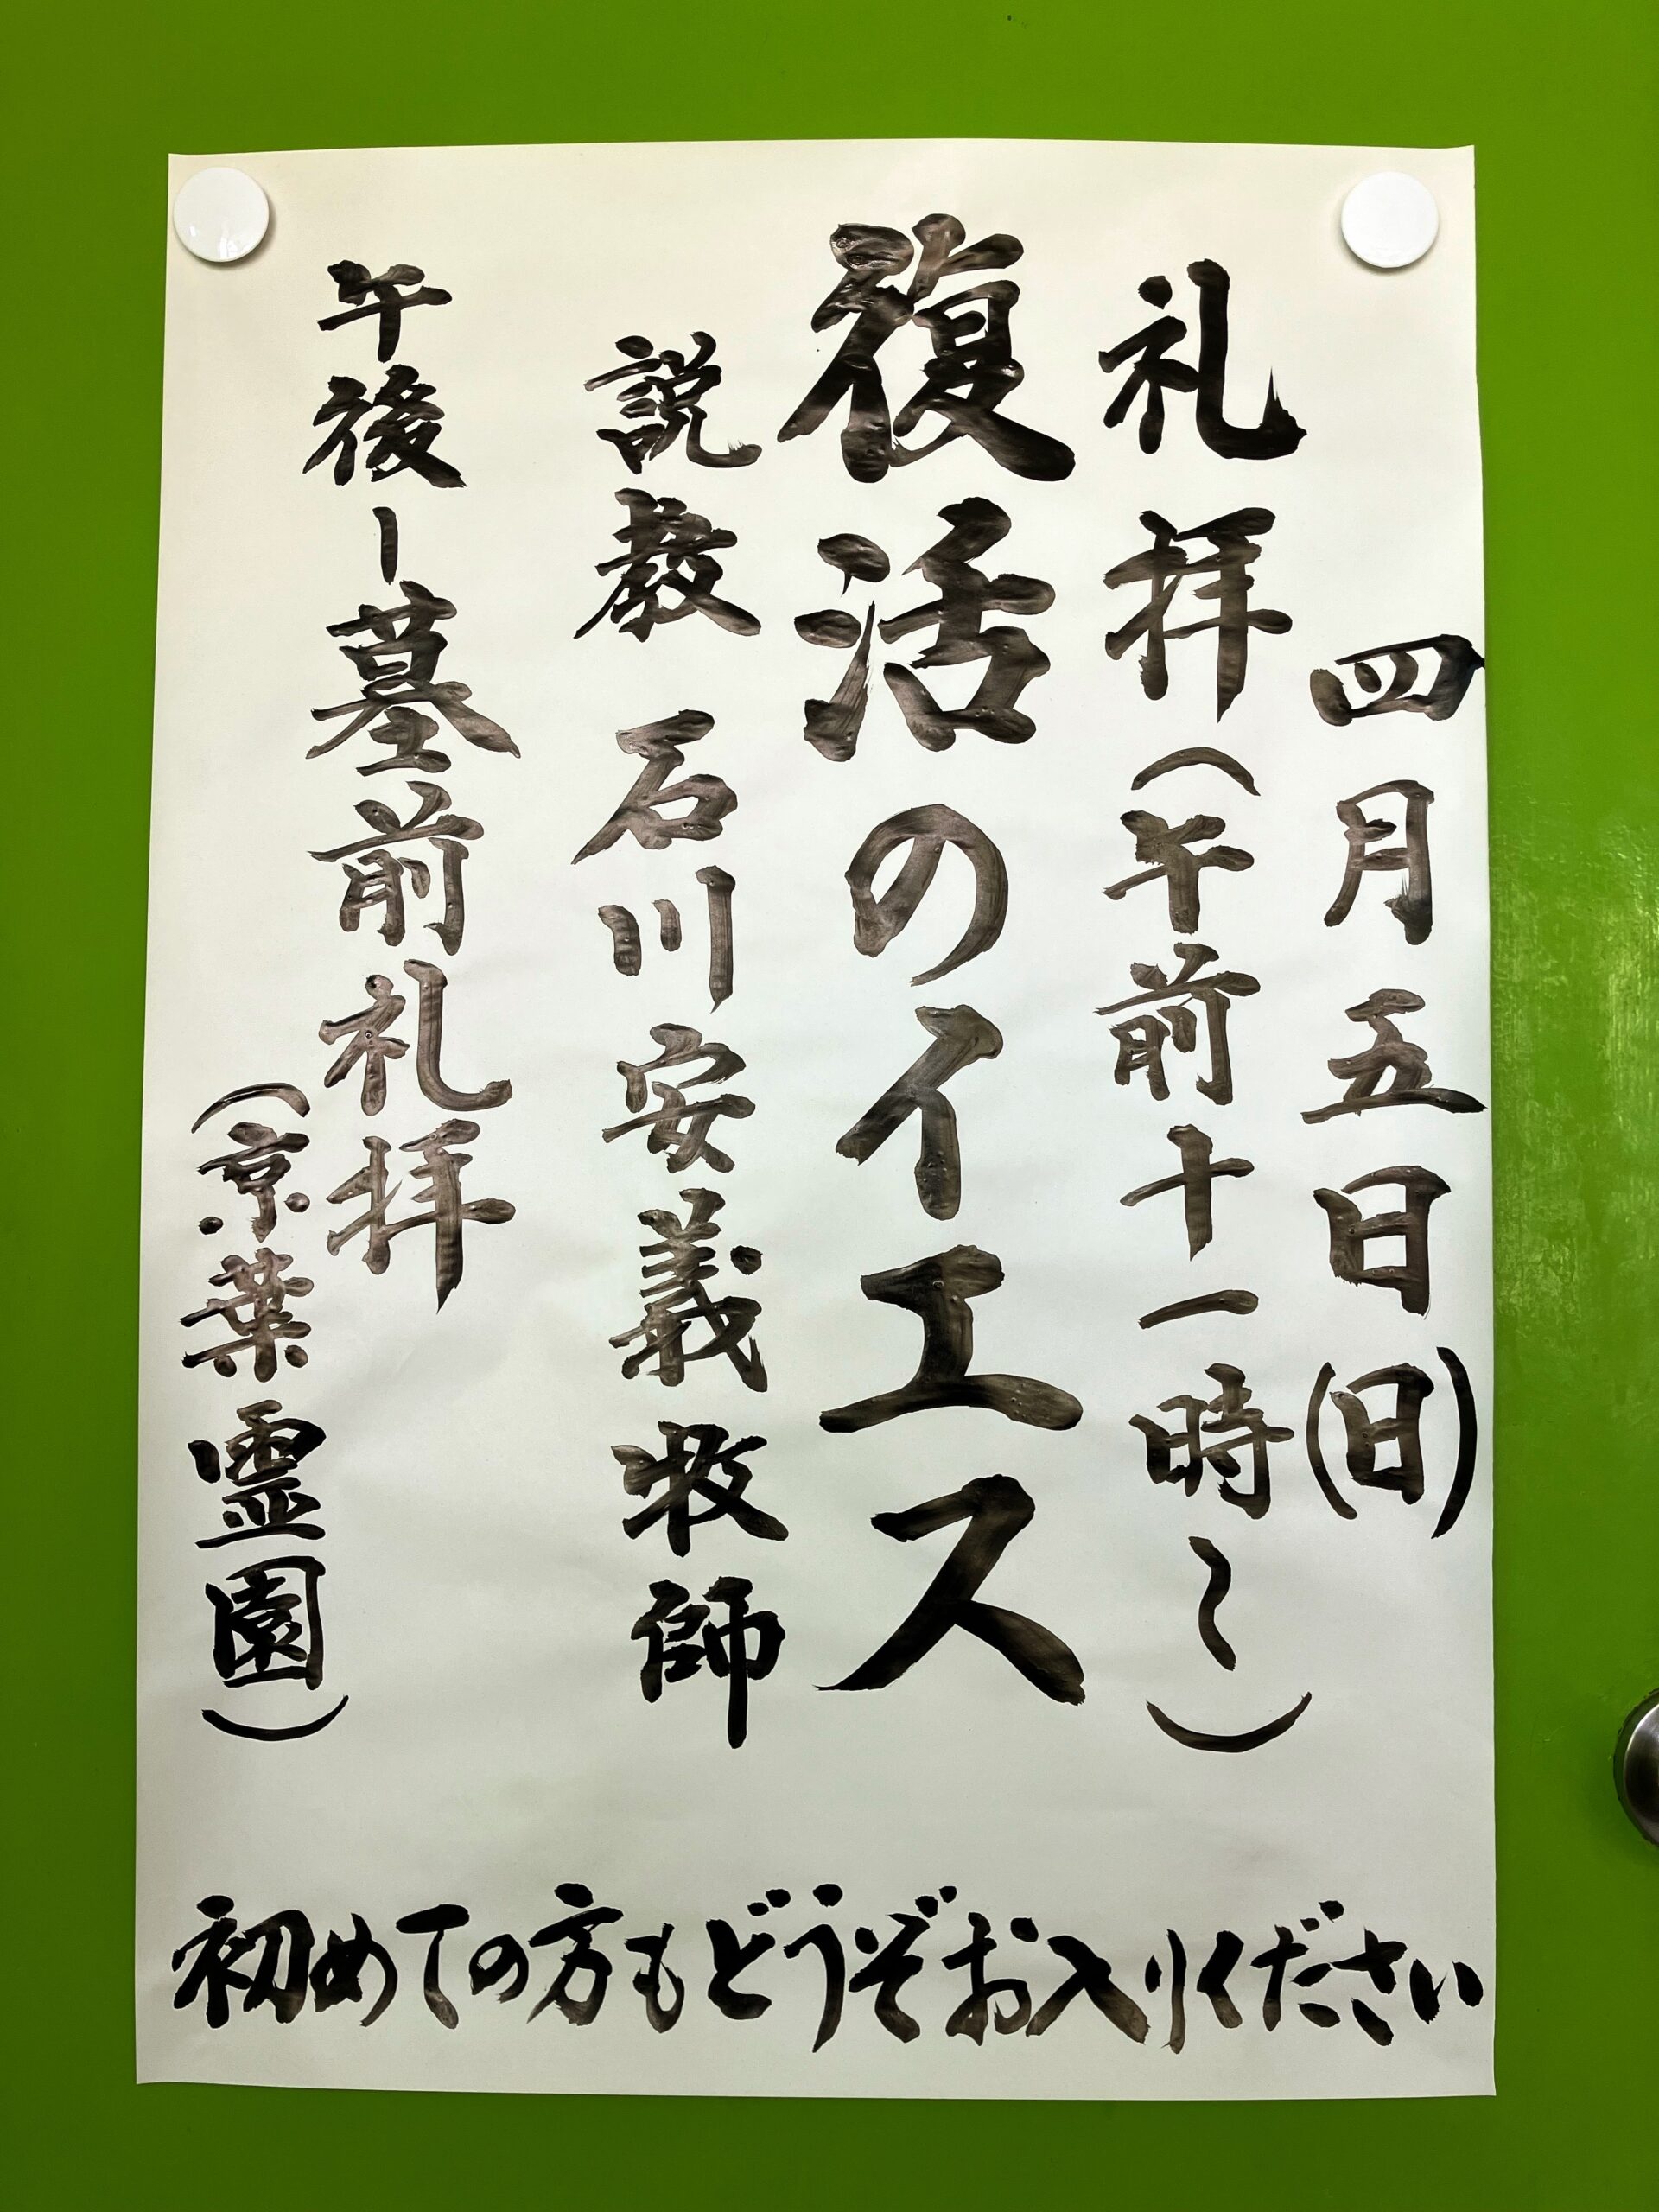 四月五日(日)
礼拝(午前十一時～)
復活のイエス
説教 石川安義牧師
午後ー墓前礼拝
(京葉霊園)
初めての方もどうぞお入りください